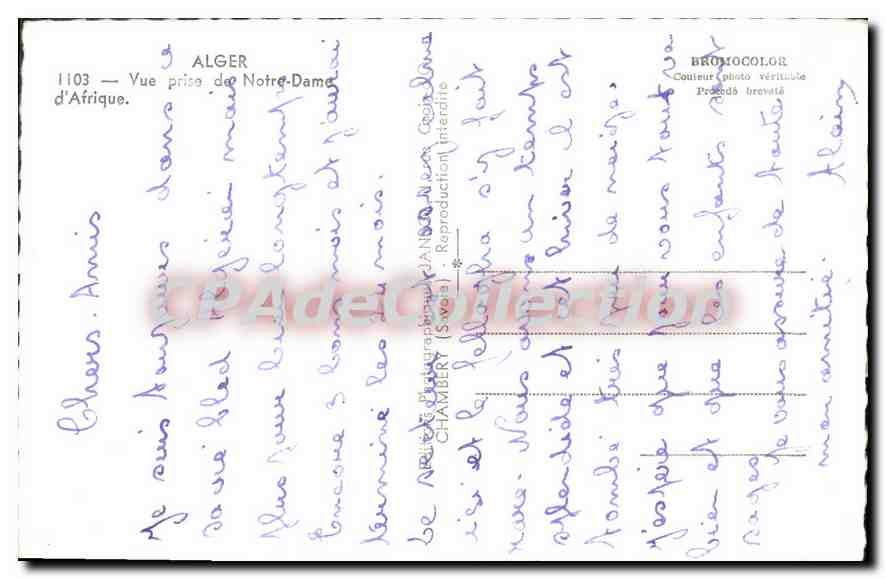 ALGER
1103 — Vue prise de Notre-Dame
d'Afrique.
BROMOCOLOR
Couleur photo véritable
Procédé breveté
Editions Photographiques JANSOL
CHAMBÉRY (Savoie) - Reproduction interdite
CPAdeCollection
Chers. Amis
Je suis toujours dans ce
sacré bled Algérien mais
plus pour bien longtemps
Encore 3 bons mois et j'aurai
terminé les du mois.
Le secteur est assez calme
ici et le fellagha s'y fait
rare. Nous avons un temps
splendide et cet hiver il est
tombé très peu de neige.
J'espère que pour vous tout va
bien et que les enfants sont
sages je vous assure de toute
mon amitié. Alain